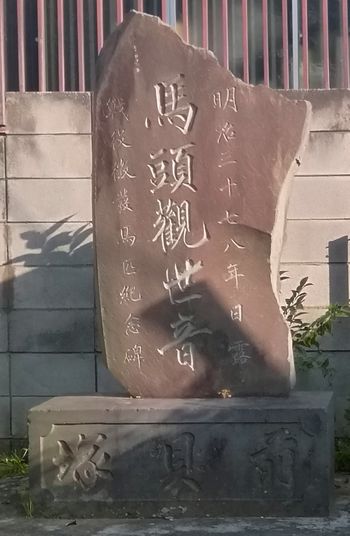 明治三十七八年日露
馬頭觀世音
戰役徵發馬匹紀念碑
前貝塚